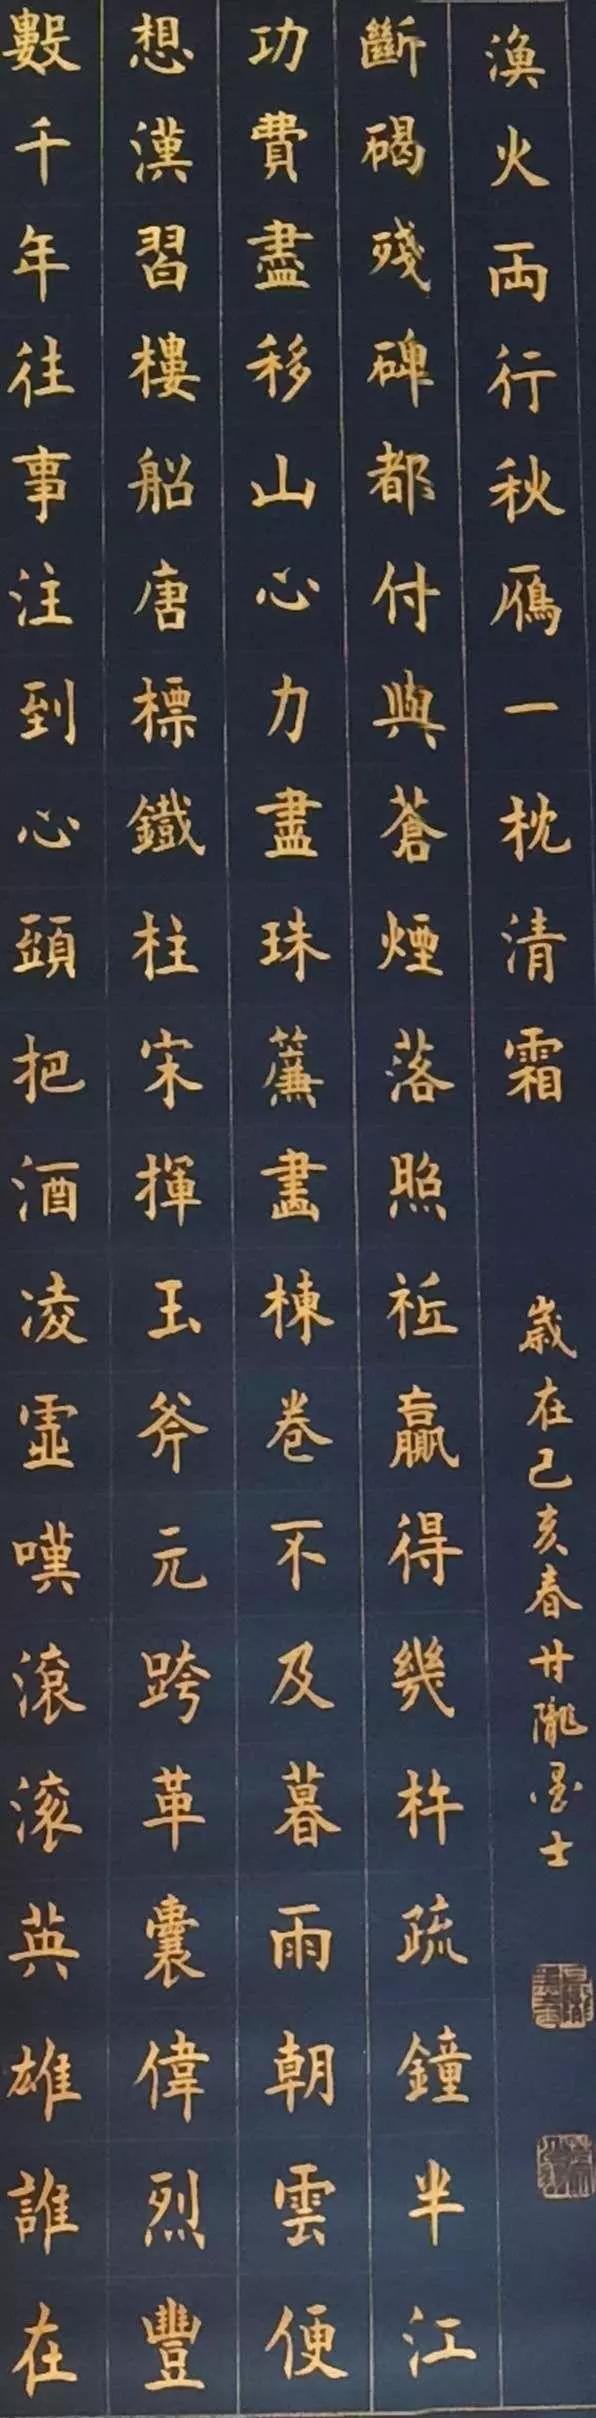 數千年往事注到心頭把酒凌虛嘆滾滾英雄誰在
想漢習樓船唐標鐵柱宋揮玉斧元跨革囊偉烈豐
功費盡移山心力盡珠簾畫棟卷不及暮雨朝雲便
斷碣殘碑都付與蒼煙落照祗贏得幾杵疏鐘半江
漁火両行秋鴈一枕清霜
歲在己亥春甘隴墨士